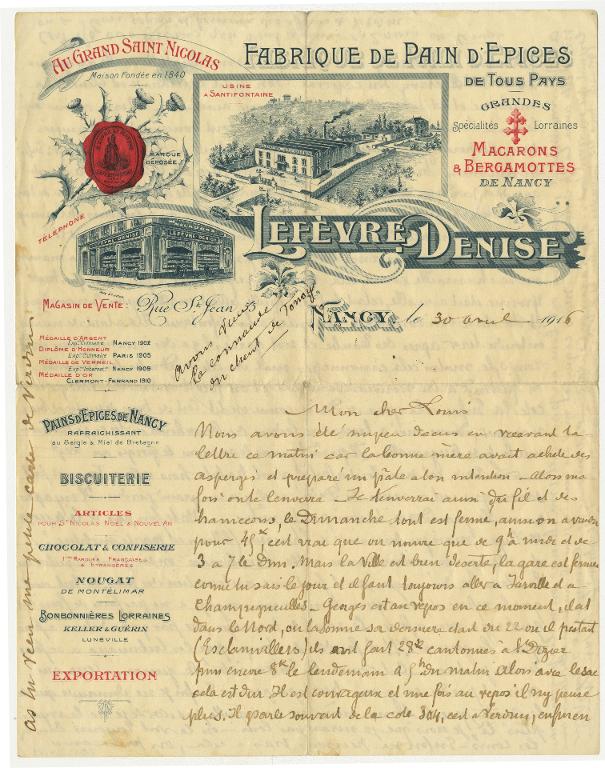 AU GRAND SAINT NICOLAS
Maison Fondée en 1840
FABRIQUE DE PAIN D'EPICES
DE TOUS PAYS
GRANDES
Spécialités Lorraines
MACARONS
& BERGAMOTTES
DE NANCY
USINE
A SANTIFONTAINE
MARQUE
DÉPOSÉE
TÉLÉPHONE
LEFÈVRE-DENISE
LEFEVRE DENISE
MAGASIN DE VENTE : Rue St Jean
NANCY, le 30 avril 1916
Avons vu
la commande
du client de
MÉDAILLE D'ARGENT
Exp. Culinaire NANCY 1902
DIPLÔME D'HONNEUR
Exp. Culinaire PARIS 1905
MÉDAILLE DE VERMEIL
Exp. Internat. NANCY 1909
MÉDAILLE D'OR
CLERMONT-FERRAND 1910
PAINS D'EPICES DE NANCY
RAFRAICHISSANT
au Seigle & Miel de Bretagne
BISCUITERIE
ARTICLES
POUR ST NICOLAS NOËL & NOUVEL AN
CHOCOLAT & CONFISERIE
1res MARQUES FRANÇAISES
& ÉTRANGÈRES
NOUGAT
DE MONTÉLIMAR
BONBONNIÈRES LORRAINES
KELLER & GUÉRIN
LUNÉVILLE
EXPORTATION
as tu reçu une petite carte de Verdun
Mon cher Louis
Nous avons été un peu en recevant ta
lettre ce matin car la bonne mère avait acheté des
asperges et préparé un pâté à ton intention - Alors ma
fois on te l'enverra - Je t'enverrai aussi du fil et des
hameçons, le Dimanche tout est fermé, aussi on a
pour 45, c'est vrai que on n'ouvre que de 9h à midi et de
3 à 7 le Dim. Mais la Ville est bien déserte, la gare est fermée
comme tu sais le jour et il faut toujours aller à Jarville et à
Champigneulles - Georges est au repos en ce moment, il est
dans le Nord, ou la Somme sa dernière était du 22 ou il partait
(Esclainvillers) ils ont fait 28k cantonnés à
puis encore 8k le lendemain à 5h du matin alors avec le sac
cela est dur. Il est courageux et une fois au repos il n'y pense
plus. Il parle souvent de la cote 304, c'est à Verdun, enfin